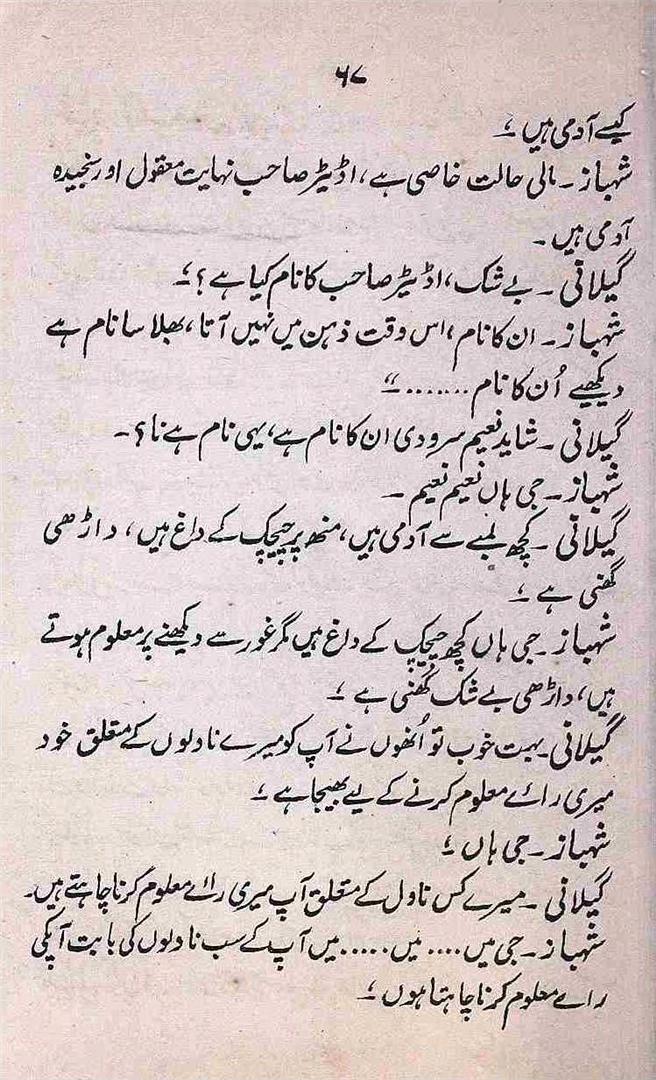 ۶۷
کیسے آدمی ہیں ؟
شہباز ۔ مالی حالت خاصی ہے ، اڈیٹر صاحب نہایت معقول اور سنجیدہ
آدمی ہیں ۔
گیلانی ۔ بے شک ، اڈیٹر صاحب کا نام کیا ہے ؟ ؛
شہباز ۔ ان کا نام ، اس وقت ذہن میں نہیں آتا ، بھلا سا نام ہے
دیکھیے اُن کا نام ....... “
گیلانی ۔ شاید نعیم سرودی ان کا نام ہے ، یہی نام ہے نا ؟ ۔
شہباز ۔ جی ہاں نعیم نعیم ۔
گیلانی ۔ کچھ لمبے سے آدمی ہیں ، منھ پر چیچک کے داغ ہیں ، داڑھی
گھنی ہے ؛
شہباز ۔ جی ہاں کچھ چیچک کے داغ ہیں مگر غور سے دیکھنے پر معلوم ہوتے
ہیں ، داڑھی بے شک گھنی ہے ؛
گیلانی ۔ بہت خوب تو اُنھوں نے آپ کو میرے نادلوں کے متعلق خود
میری رائے معلوم کرنے کے لیے بھیجا ہے ؛
شہباز ۔ جی ہاں ؛
گیلانی ۔ میرے کس ناول کے متعلق آپ میری رائے معلوم کرنا چاہتے ہیں ۔
شہباز ۔ جی میں .... میں ..... میں آپ کے سب نادلوں کی بابت آپکی
رائے معلوم کرنا چاہتا ہوں ؛